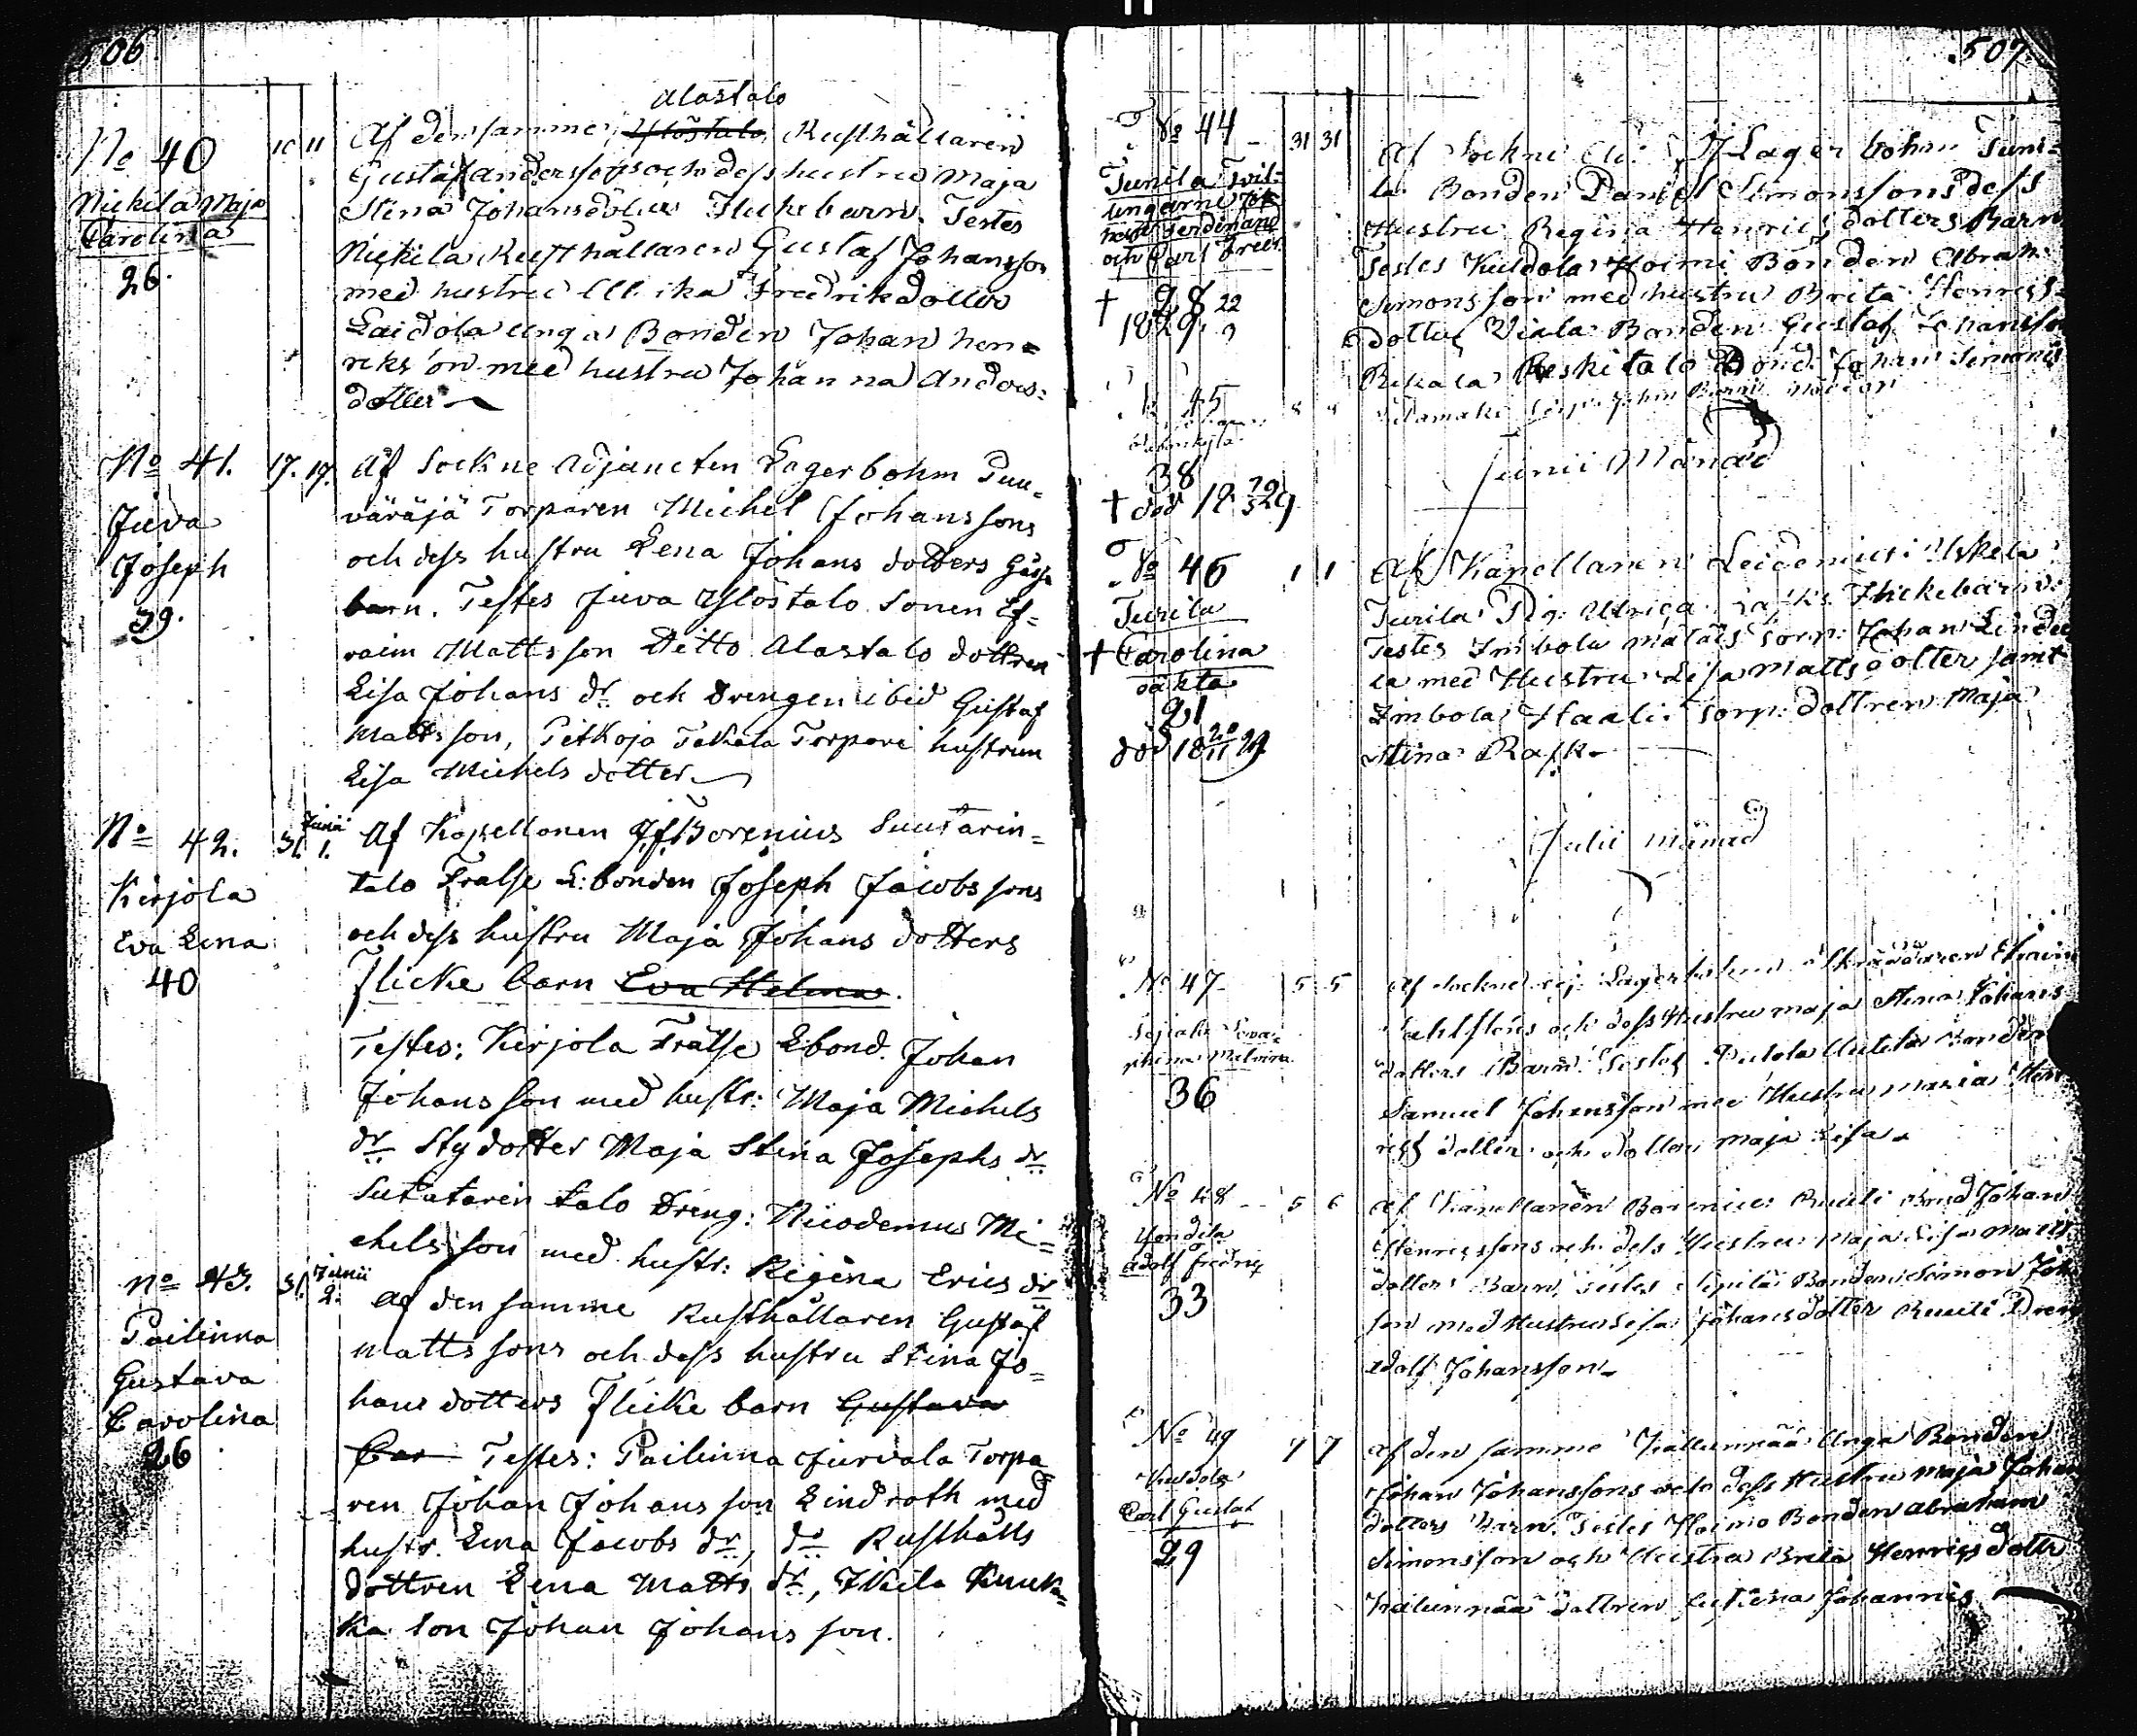 506
No 40
10 11
Nickila Maja
Carolina
26.
Alastalo
Af densamme, Ylöstalo, Rusthållaren
Gustaf Andersson och dess hustru Maja
Stina Johansdotters Flickebarn. Testes
Nickila Rusthållaren Gustaf Johansson
med hustru Ullika Fredriksdotter
Laidola unga Bonden Johan Hen=
rikson med hustru Johanna Anders=
dotter
No 41.
17. 19.
Juva
Joseph
39.
Af Sockne Adjuncten Lagerbohm Puu=
väräjä Torparen Michel Johanssons
och dess hustru Lena Johans dotters Gåsse
barn. Testes Juva Ylöstalo Sonen Ef=
raim Mattsson Ditto Alastalo dottren
Lisa Johans dr och Drengen ibid Gustaf
Mattsson, Pitkoja Takala Torpare hustrun
Lisa Michels dotter
No 42.
31. Junii 1.
Kirjola
Eva Lena
40
Af Kapellanen J. f. Borenius Suutarin=
talo Frälse L: bonden Joseph Jacobssons
och dess hustru Maja Johans dotters
Flicke barn Eva Helena.
Testes: Kirjola Frälse Lbond. Johan
Johansson med hustr: Maja Michels
dr Styfdotter Maja Stina Josephs dr
Sututarin talo Dreng: Nicodemus Mi=
chelsson med hustr: Regina Erics dr
No 43.
31. Junii 2.
Pailinna
Gustava
Carolina
26
Af den samme Rusthållaren Gustaf
Mattssons och dess hustru Stina Jo=
hans dotters Flicke barn Gustava
Car Testes: Pailinna Jurvala Torpa
ren Johan Johansson Lindroth med
hustr. Lena Jacobs dr, dr Rusthålls
dottren Lena Matts dr, Ikila Kuuk=
ka Son Johan Johansson.
507
No 44
31 31
Tunila Tvil=
lingarne Joh
Ferdinand
och Carl Fredr.
† 28 22
1829. 9
Af Sockne Adj Lagerbohm Tuni=
la Bonden Daniel Simonssons dess
Hustru Regina Henricsdotters Barn
Testes Kuldola Hoimi Bonden Abrah.
Simonsson med hustru Brita Henrics
dotter, Viala Bonden Gustaf Johansson
Rekala Keskitalo Bond. Johan Simons
No 45
8 8
38
† död 18 29
Junii Månad
No 46
1 1
Turila
† Carolina
oäkta
21
död 18 20/11 29
Af Kapellanen Leidenius: Uskela
Turila Pig. Ulrica Rasks Flickebarn.
Testes Imbola Mäläis Torp. Johan Linde
la med Hustru Lisa Matts dotter samt
Imbola Haali Torp. dottren Maja
Stina Rask
Julii Månad
No 47
5 5
36
Af Sockne adj. Lagerbohm Skräddaren Efraim
Dahlstens och dess Hustru Maja Stina Johans
dotters Barn Testes Bonden
Samuel Johansson med Hustru Maria Hen
rics dotter och dottern Maja Lisa
No 48
5 6
Yondila
Adolf Fredric
33
Af Kapellanen Borenius Ruuti Bond Johan
Henricssons och dess Hustru Maja Lisa Matts
dotters Barn, Testes Sipilä Bonden Simon Joh
son med Hustru Lisa Johansdotter Ruuti Dren
Adolf Johansson
No 49
7 7
Kuldola
Carl Gustaf
29
Af den samme Kallunnää Unga Bonden
Johan Johanssons och dess Hustru Maja Johans
dotters Barn. Testes Hoimo Bonden Abraham
Simonsson och Hustru Brita Henrics dotter
Kalunnää dottren Johannis